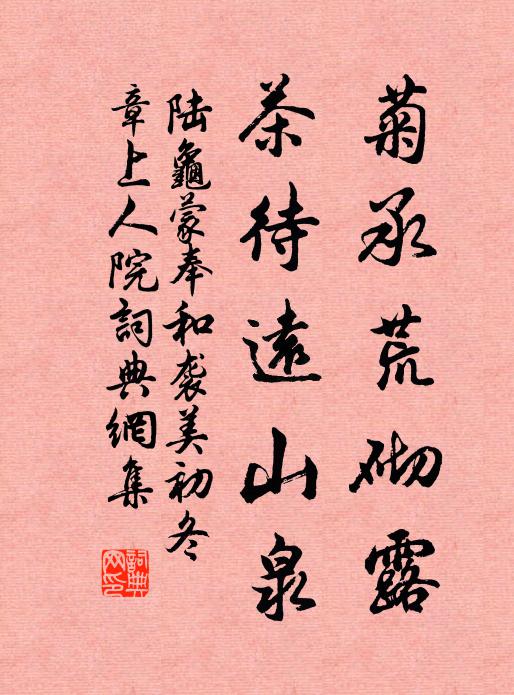 菊承荒砌露
茶待遠山泉
陆龜蒙奉和袭美初冬
章上人院詞典網集
詞典网印